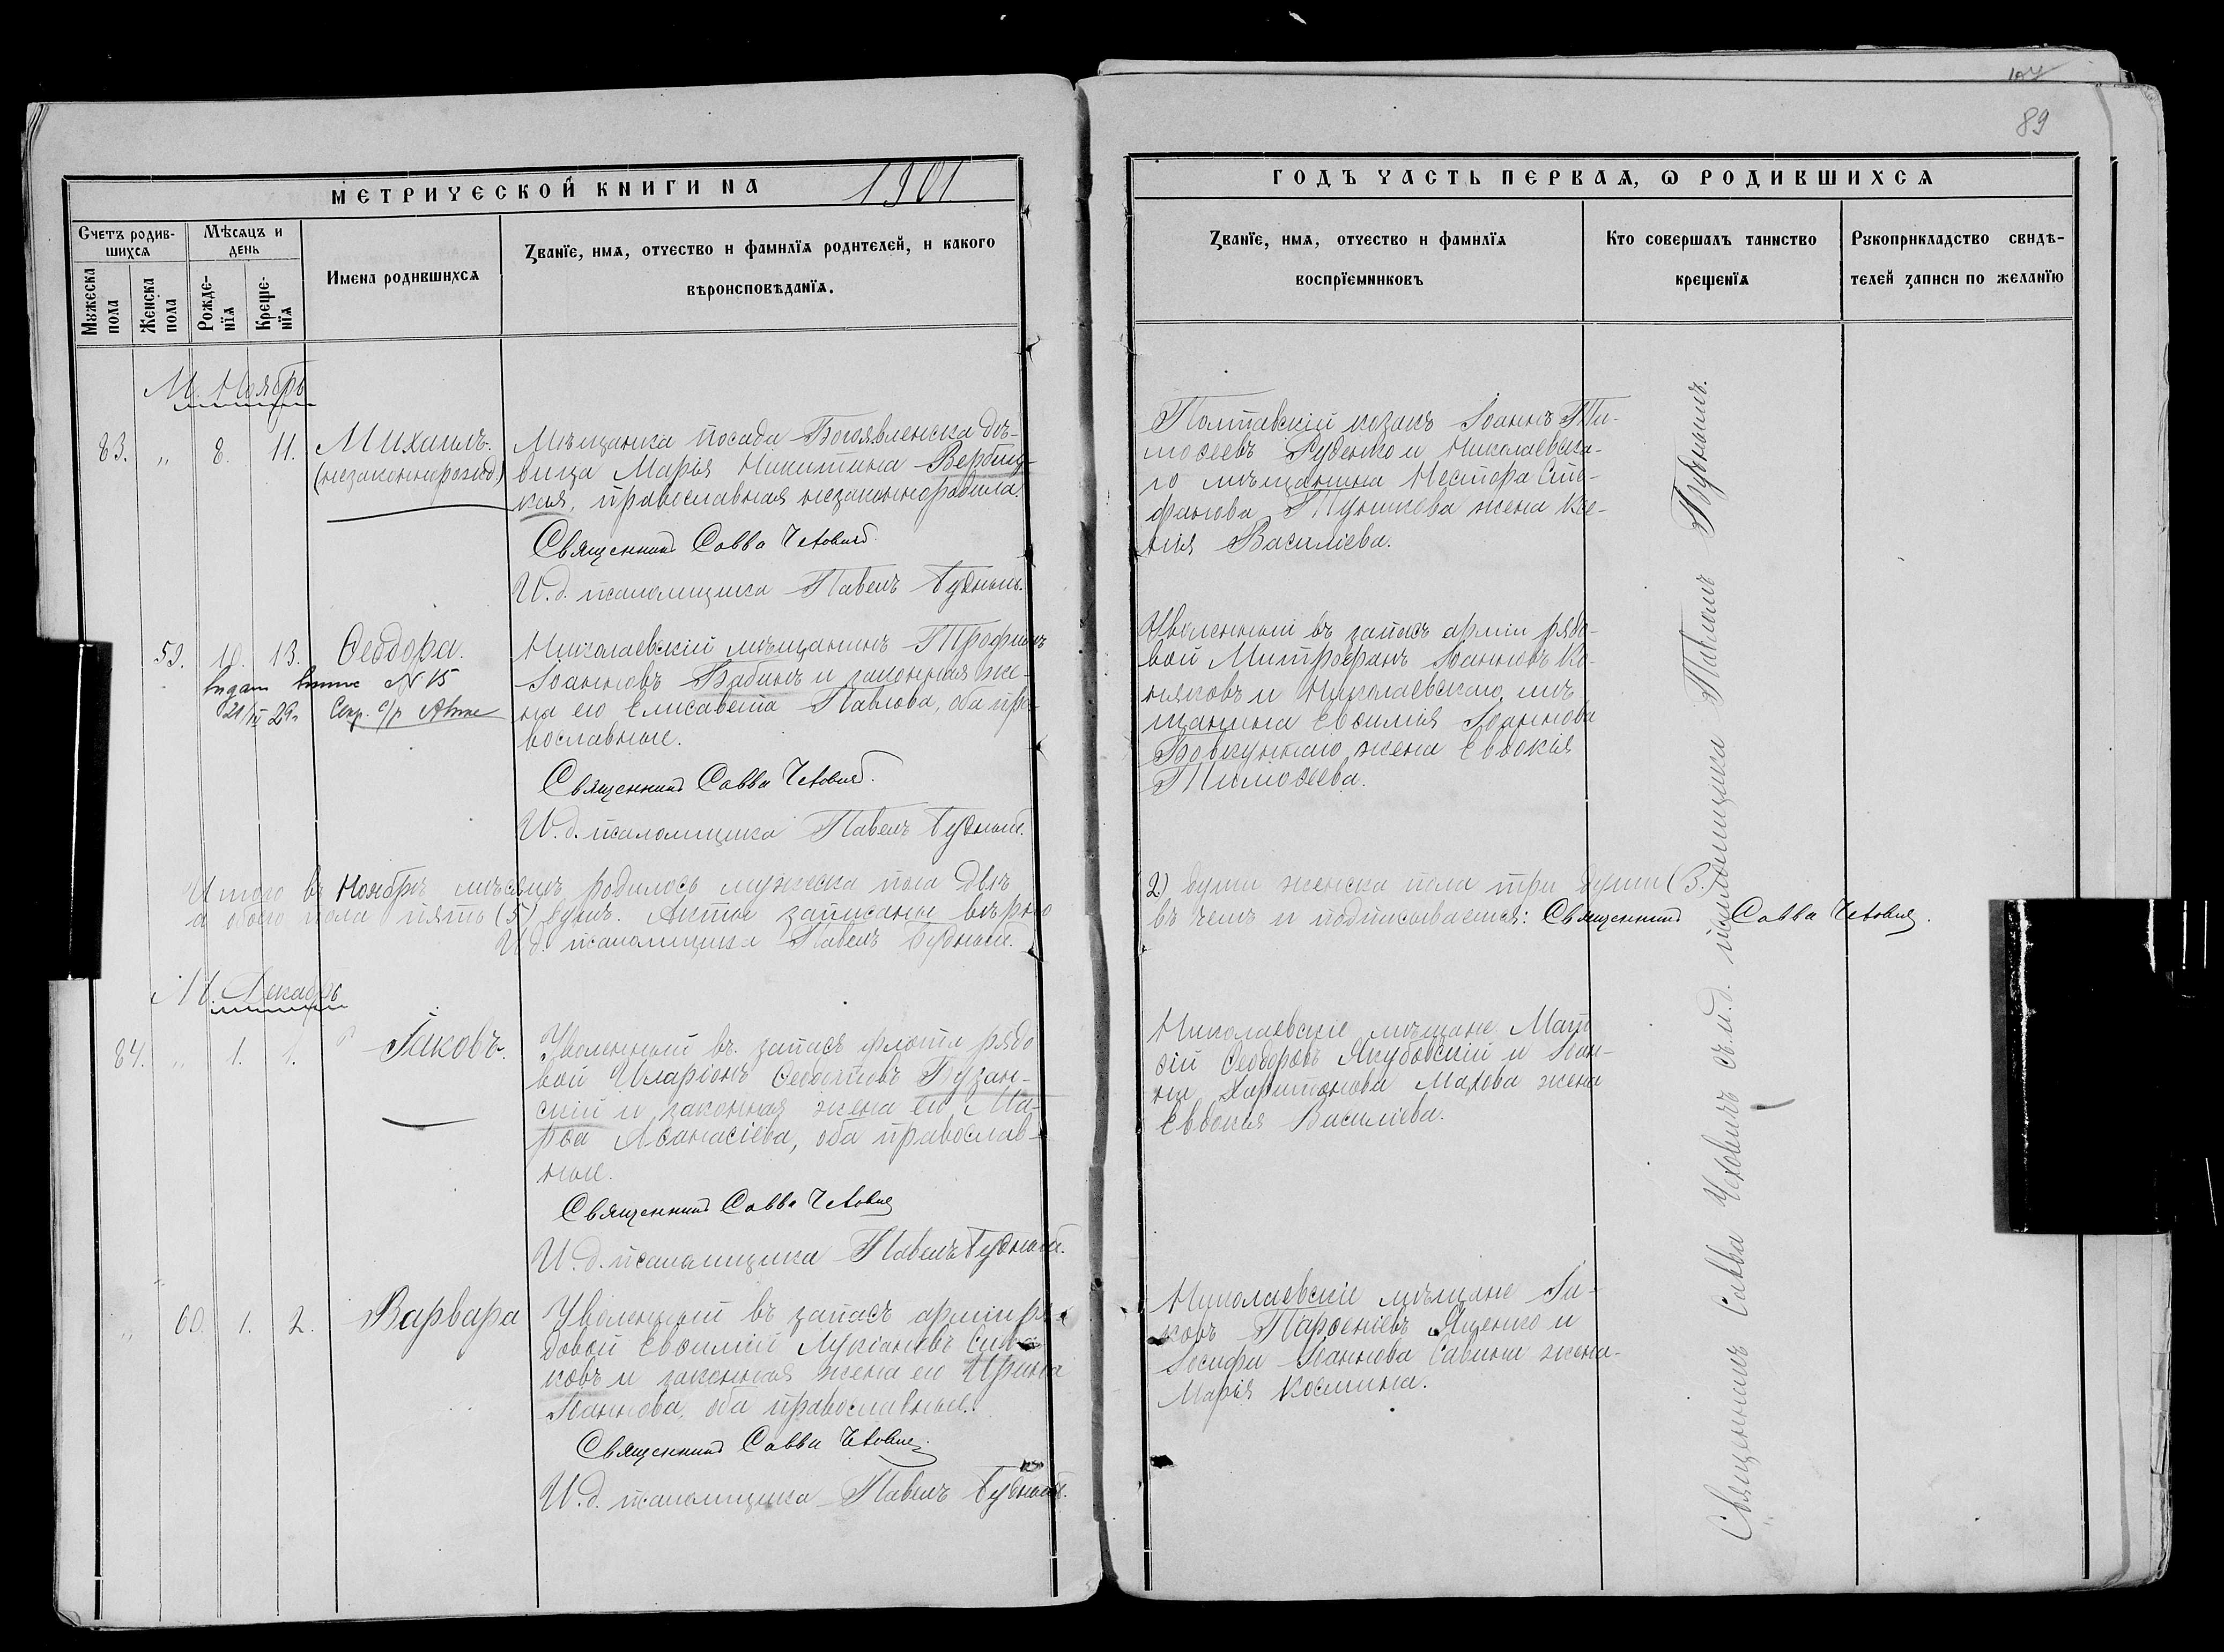 107
89
МЕТРИЧЕСКОЙ КНИГИ НА 1901
ГОДЪ ЧАСТЬ ПЕРВАѦ, Ѡ РОДИВШИХСѦ
Счетъ родившихсѧ
Мѣсѧцъ и день
Мꙋжеска пола
Женска пола
Рожденїѧ
Крещенїѧ
Имена родившихсѧ
Званїе, имѧ, отчество и фамилїѧ родителей, и какого
вѣроисповѣданїѧ.
Званїе, имѧ, отчество и фамилїѧ
воспрїемниковъ
Кто совершалъ таинство
крещенїѧ
Рꙋкоприкладство свидѣ-
телей записи по желанїю
М. Ноябрь
83. „ 8. 11. Михаилъ.
(незаконнорожд.)
Мѣщанка посада Богоявленска дѣ-
вица Марія Никитина Вербиц-
кая, православная незаконнородила.
Священникъ Савва Чехович
И. д. псаломщика Павелъ Будный.
Полтавскій козакъ Іоаннъ Ти-
моѳеевъ Руденко и Николаевска-
го мѣщанина Нестора Сте-
фанова жена Ксе-
нія Василіева.
59. 10. 13. Ѳеодора.
№ 15
Николаевскій мѣщанинъ Трофимъ
Іоанновъ Бабинъ и законная же-
на его Елисавета Павлова, оба пра-
вославные.
Священникъ Савва Чехович.
И. д. псаломщика Павелъ Будный.
Уволенный въ запасъ арміи рядо-
вой Митрофанъ Іоанновъ Ко-
няковъ и Николаевскаго мѣ-
щанина Евѳимія Іоаннова
жена Евдокія
Тимоѳеева.
Итого въ Ноябрѣ мѣсяцѣ родилось мужеска пола двѣ
(2) души женска пола три души (3.)
а обоего пола пять (5) душъ. Акты записаны вѣрно
въ чемъ и подписываемся: Священникъ Савва Чехович.
И. д. псаломщика Павелъ Будный.
М. Декабрь
84. „ 1. 1. Іаковъ.
Уволенный въ запасъ флота рядо
вой Иларіонъ Бузан-
скій и законная жена его Ма-
рѳа Аѳанасіева, оба православ-
ные.
Священникъ Савва Чехович
И. д. псаломщика Павелъ Будный.
Николаевскіе мѣщане Мат
ѳій Ѳеодоровъ Якубовскій и Іоан-
на Харитонова Махова жена
Евдокія Василіева.
„ 60. 1. 2. Варвара
Уволенный въ запасъ арміи ря-
довой Евѳимій Лукіановъ
ковъ и законная жена его Ирина
Іоаннова, оба православные.
Священникъ Савва Чехович
И. д. псаломщика Павелъ Будный.
Николаевскіе мѣщане Іа-
ковъ Парѳеніевъ Яценко и
Іосифа Іоаннова Савина жена
Марія Космина.
Священникъ Савва Чеховичъ съ и. д. псаломщика Павломъ Буднымъ.